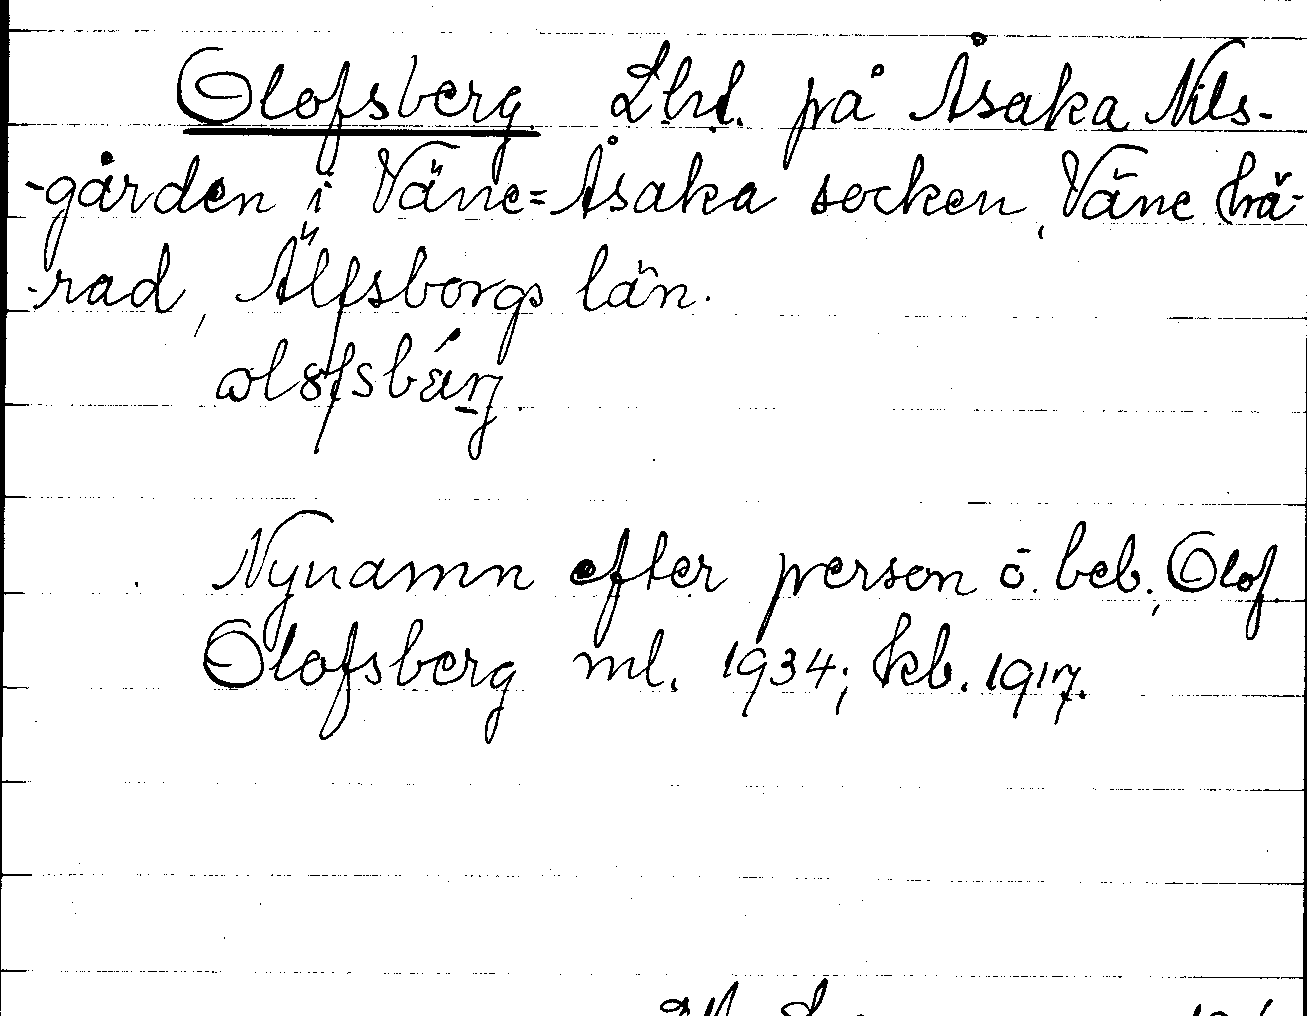 Olofsberg Lht. på Åsaka Nils-
-gården i Väne=Åsaka socken, Väne hä-
-rad, Älfsborgs län.
Nynamn efter person o. beb., Olof
Olofsberg ml. 1934; kb. 1917.